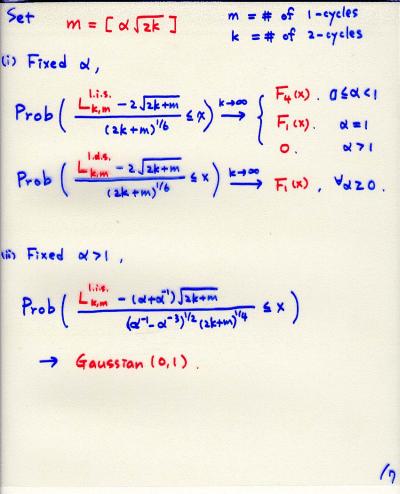 Set m = [α√2k] m = # of 1-cycles
k = # of 2-cycles
(i) Fixed α,
Prob( (L_{k,m}^{l.i.s.} − 2√(2k+m)) / (2k+m)^{1/6} ≤ x ) →^{k→∞} { F₄(x). 0≤α<1
F₁(x). α=1
0. α>1
Prob( (L_{k,m}^{l.d.s.} − 2√(2k+m)) / (2k+m)^{1/6} ≤ x ) →^{k→∞} F₁(x), ∀α≥0.
(ii) Fixed α>1,
Prob( (L_{k,m}^{l.i.s.} − (α+α^{-1})√(2k+m)) / ((α^{-1}−α^{-3})^{1/2} (2k+m)^{1/4}) ≤ x )
→ Gaussian (0,1).